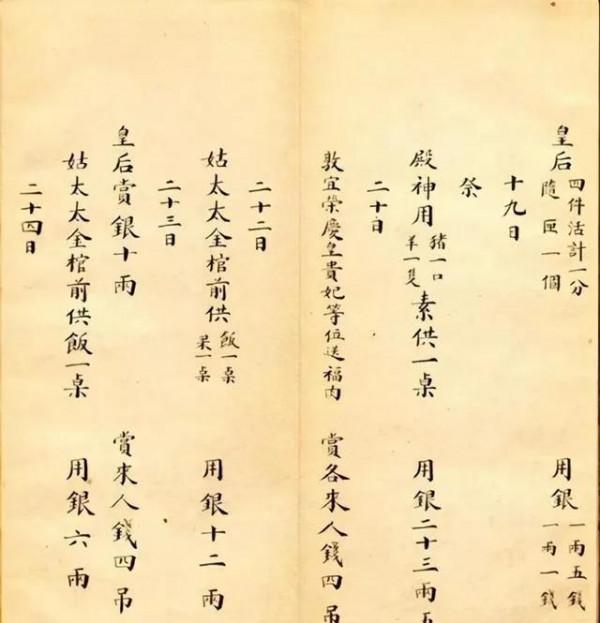 皇后 四件活計一分 隨匣一個 用銀 一兩五錢 一兩一錢
十九日
祭
殿神用 猪一口 羊一隻 素供一桌 用銀二十三兩五
二十日
敦宜榮慶皇貴妃等位送福肉 賞各來人錢四吊
二十二日
姑太太金棺前供 飯一桌 果一桌 用銀十二兩
二十三日
皇后賞銀十兩 賞來人錢四吊
姑太太金棺前供飯一桌 用銀六兩
二十四日